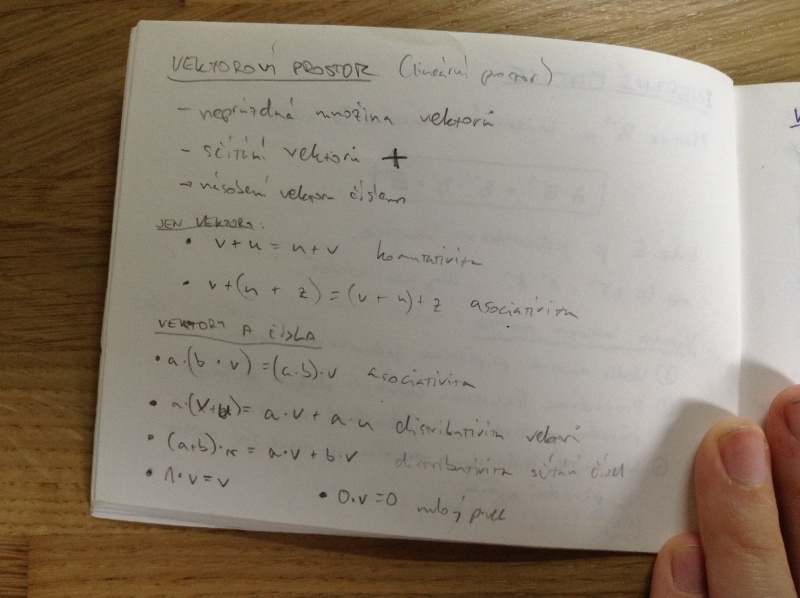 VEKTOROVÝ PROSTOR (lineární prostor)
- neprázdná množina vektorů
- sčítání vektorů +
- násobení vektoru číslem
JEN VEKTORY:
• v+u = u+v komutativita
• v+(u+z)=(v+u)+z asociativita
VEKTORY A ČÍSLA
• a·(b·v)=(a·b)·v asociativita
• a·(v+u)= a·v + a·u distributivita vektorů
• (a+b)·v = a·v + b·v distributivita sčítání čísel
• 1·v=v
• 0·v=0 nulový prvek